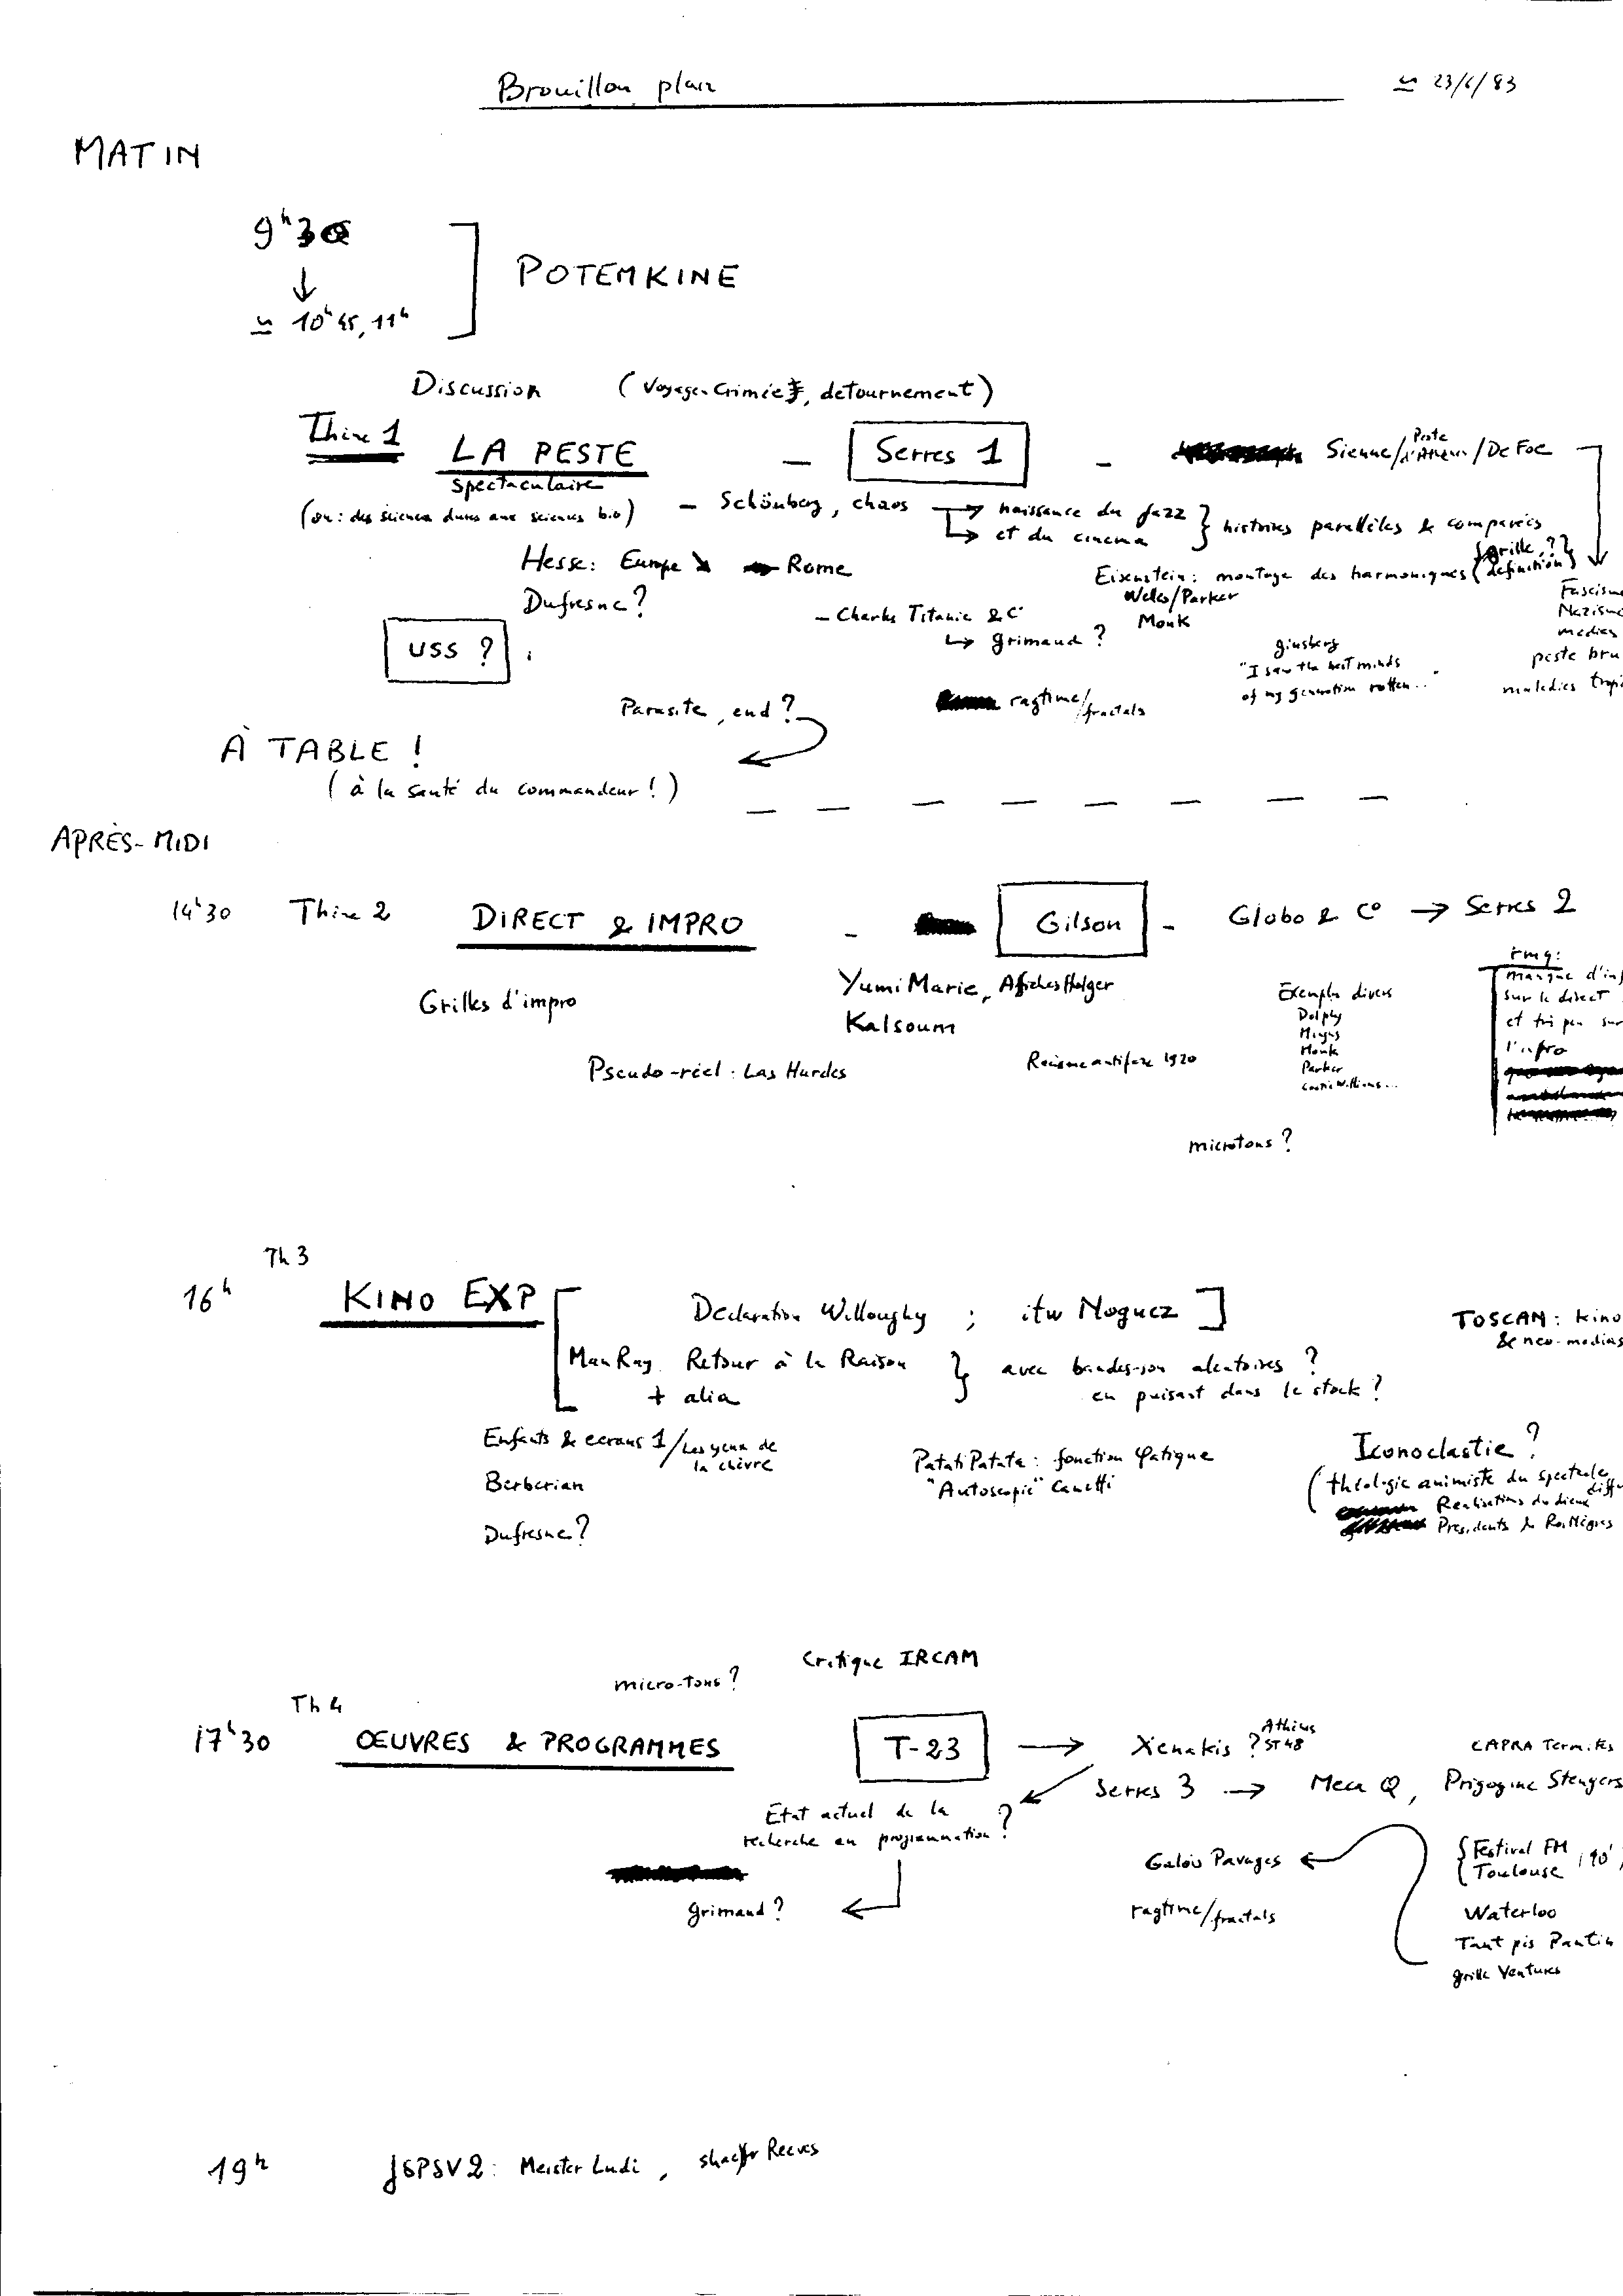 Brouillon plan
≃ 23/6/83
MATIN
9h30
↓
≃ 10h45, 11h
POTEMKINE
Discussion (Voyages Crimée, détournement)
Thème 1
LA PESTE — Serres 1 — Sienne/Peste d'Athènes/De Foe
spectaculaire
(ou : des sciences dures aux sciences bio) — Schönberg, chaos → naissance du jazz
↳ et du cinéma } histoires parallèles & comparées
Hesse : Europe Rome
Eisenstein : montage des harmoniques (définition)
{grille, ?}
Welles/Parker
Monk
Dufresne ?
— Charles Titanic & C°
↳ grimaud ?
Fascisme
Nazisme
médias
peste bru
maladies tropi
USS ?
ginsberg
"I saw the best minds
of my generation rotten..."
Parasite, end ?
ragtime/fractals
À TABLE !
(à la santé du commandeur !)
APRÈS-MIDI
14h30 Thème 2 DIRECT & IMPRO — Gilson — Globo & C° → Serres 2
Grilles d'impro
Yumi Marie, Affiches Holger
Kalsoum
Exemples divers
Dolphy
Mingus
Monk
Parker
Cootie Williams...
rmq :
manque d'inf
sur le direct
et très peu sur
l'impro
Pseudo-réel : Las Hurdes
Racisme antijazz 1920
microtons ?
Th 3
16h KINO EXP
[Déclaration Willoughby ; itw Noguez]
TOSCAN : kino
& neo-medias
Man Ray Retour à la Raison
+ alia } avec bandes-son aléatoires ?
en puisant dans le stock ?
Enfants & écrans 1/Les yeux de
la chèvre
Berberian
Dufresne ?
Patati Patata : fonction phatique
"Autoscopie" Canetti
Iconoclastie ?
(théologie animiste du spectacle
Réalisations du dieu
Présidents & Rois Nègres
micro-tons ?
Critique IRCAM
Th 4
17h30 ŒUVRES & PROGRAMMES T-23 → Xenakis ? Athènes
ST 48
CAPRA Termites
Serres 3 → Meca Q, Prigogine Stengers
Etat actuel de la
recherche en programmation ?
grimaud ?
Galois Pavages
ragtime/fractals
{Festival FM
Toulouse, 90'
Waterloo
Tant pis Pantin
grille Ventures
19h JSPSV 2 : Meister Ludi, Shaeffer Reeves